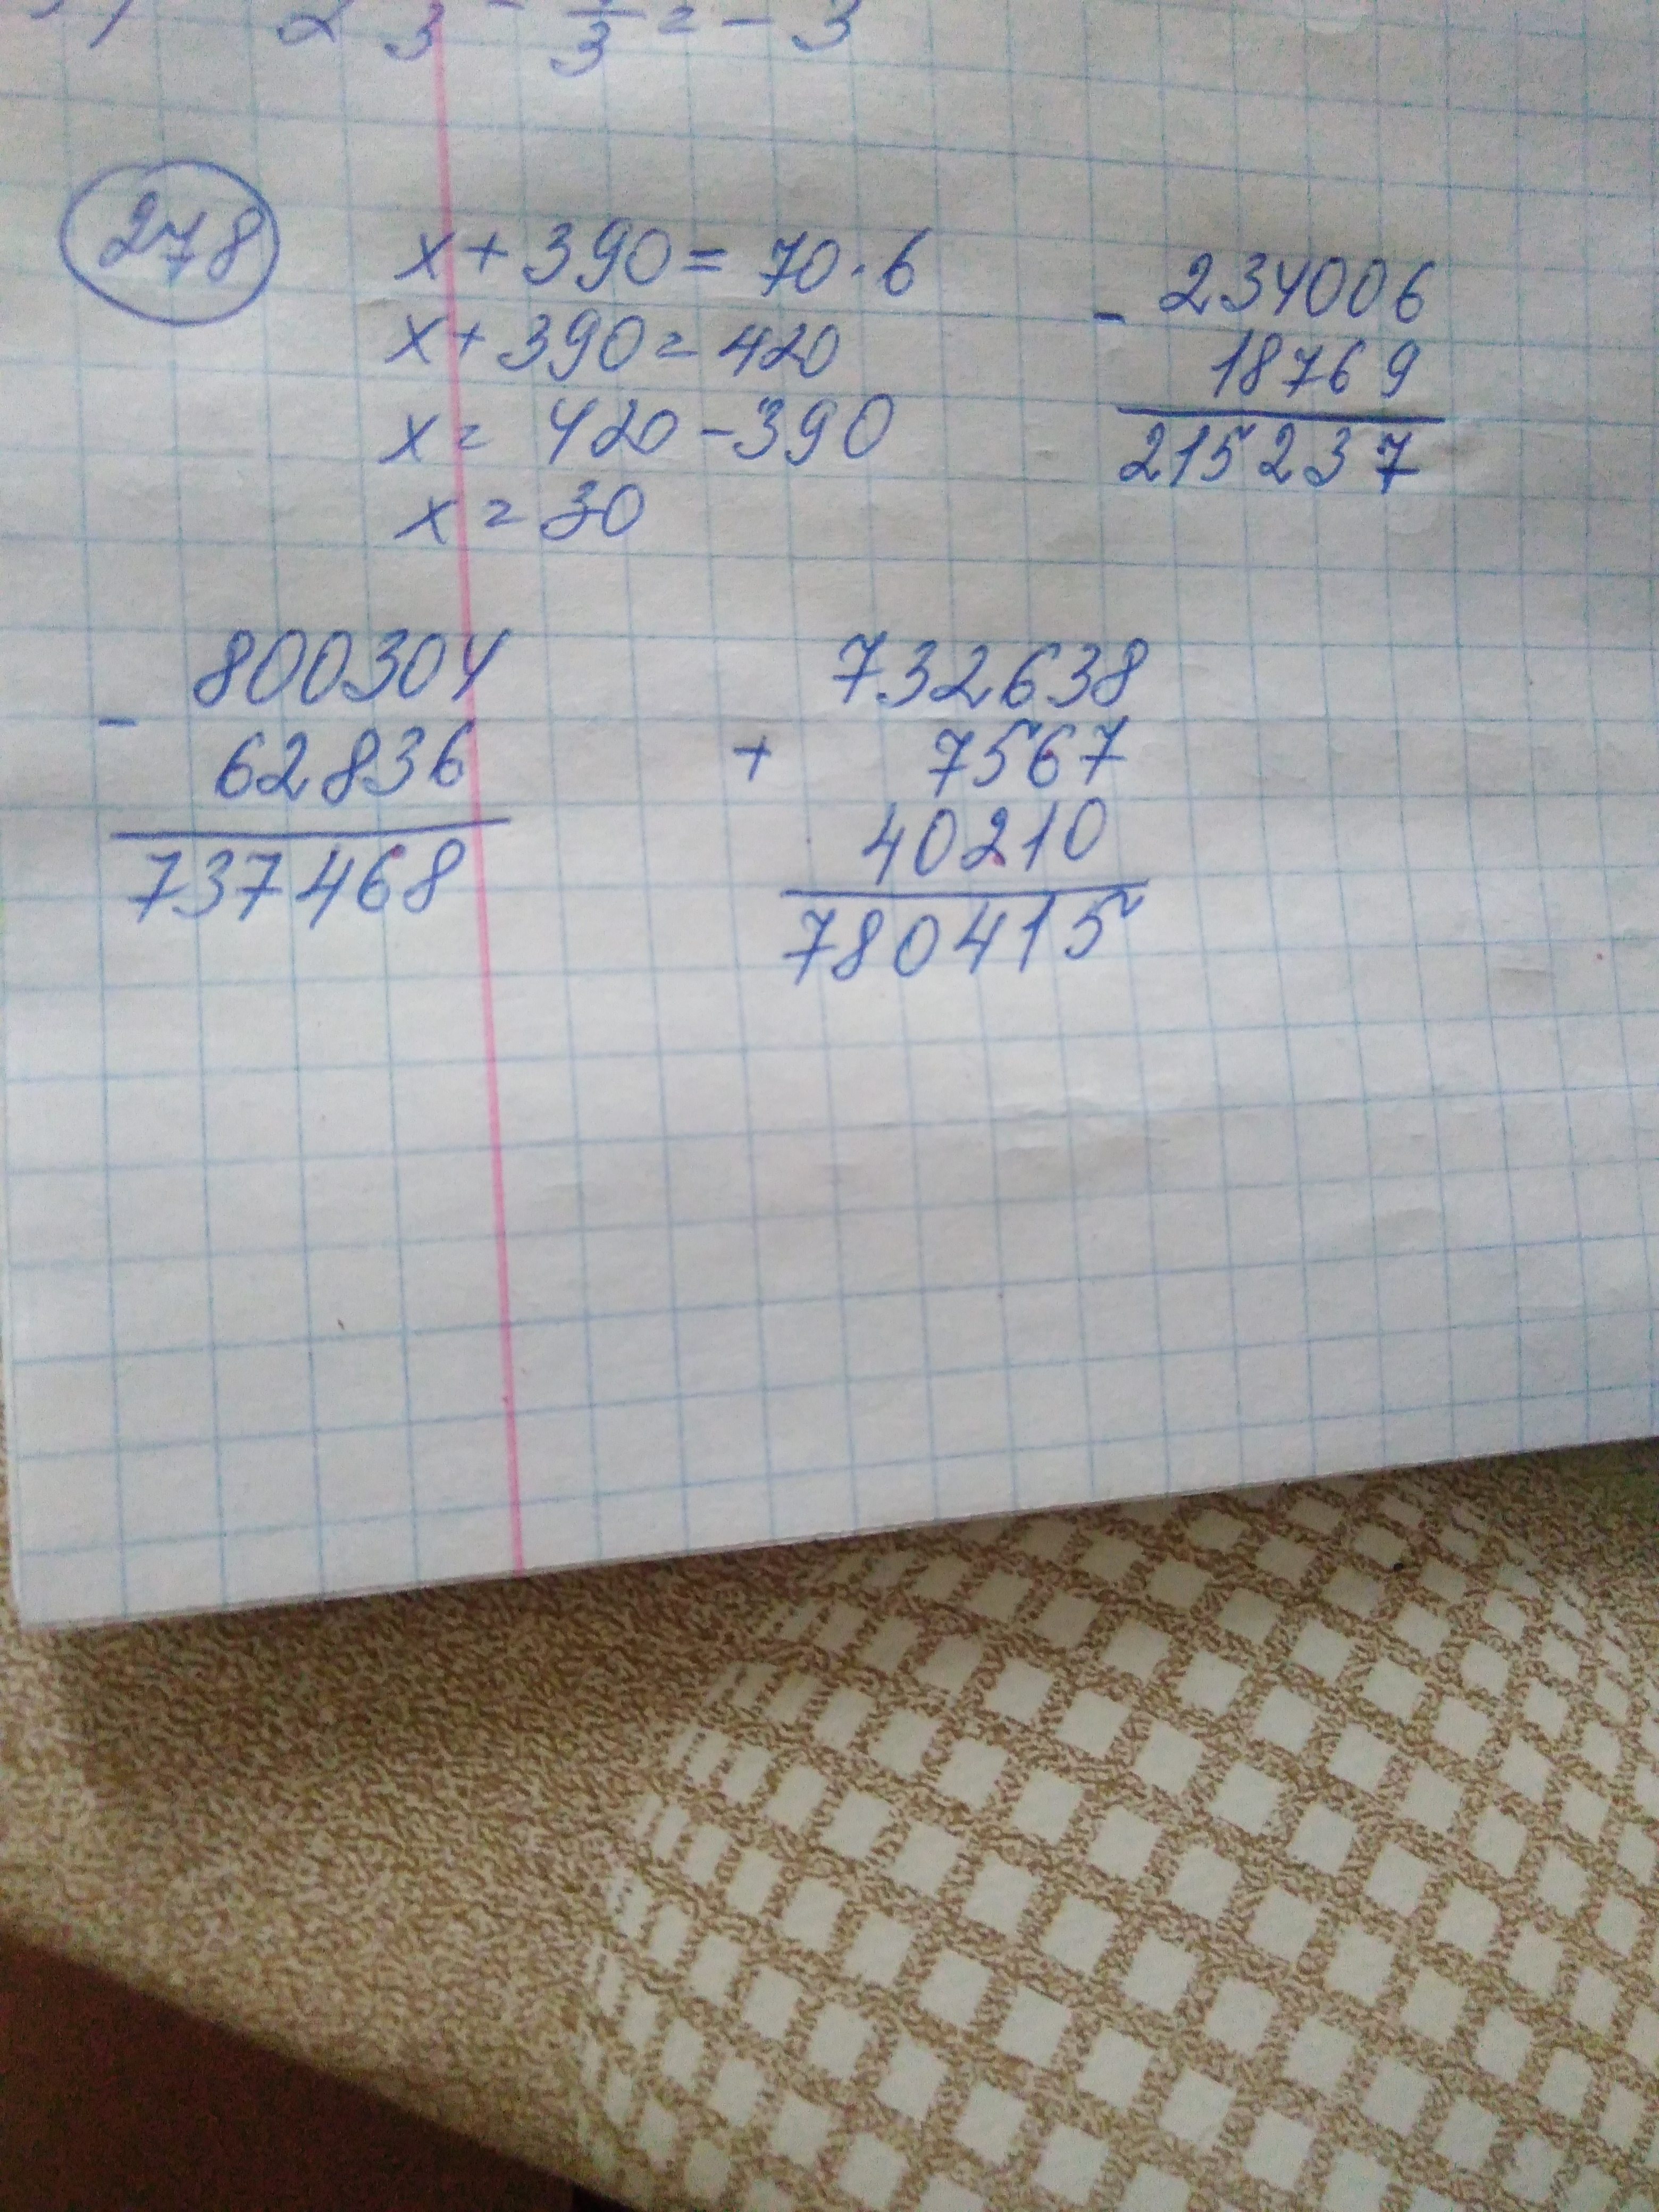 278
x + 390 = 70 · 6
x + 390 = 420
x = 420 - 390
x = 30
- 234006
18769
215237
- 800304
62836
737468
732638
+ 7567
40210
780415